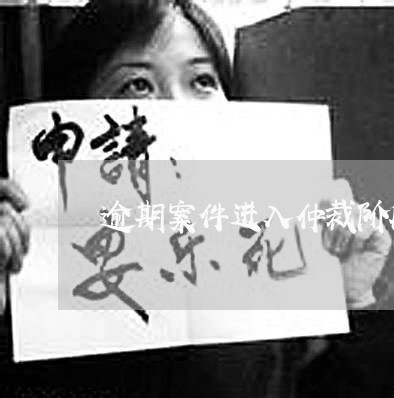 申請：
逾期案件进入仲裁阶
安乐死